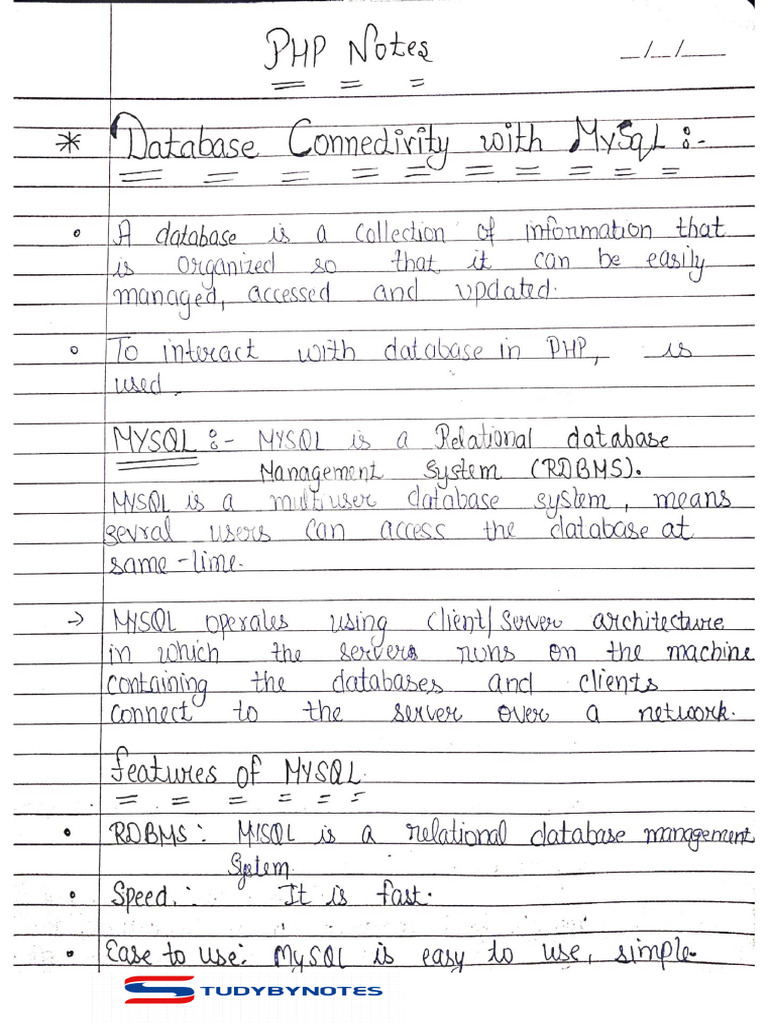 PHP Notes
_/_/__
* Database Connedivity with MySqL :-
• A database is a collection of information that
is organized so that it can be easily
managed, accessed and updated.
• To interact with database in PHP, is
used.
MYSQL :- MYSQL is a Relational database
Management System (RDBMS).
MYSQL is a multiuser database system, means
sevral users can access the database at
same-time.
→ MYSQL operales using client/server architecture
in which the servers runs on the machine
containing the databases and clients
connect to the server over a network.
features of MYSQL.
• RDBMS: MYSQL is a relational database management
System.
• Speed.: It is fast.
• Ease to use: MySQL is easy to use, simple.
STUDYBYNOTES